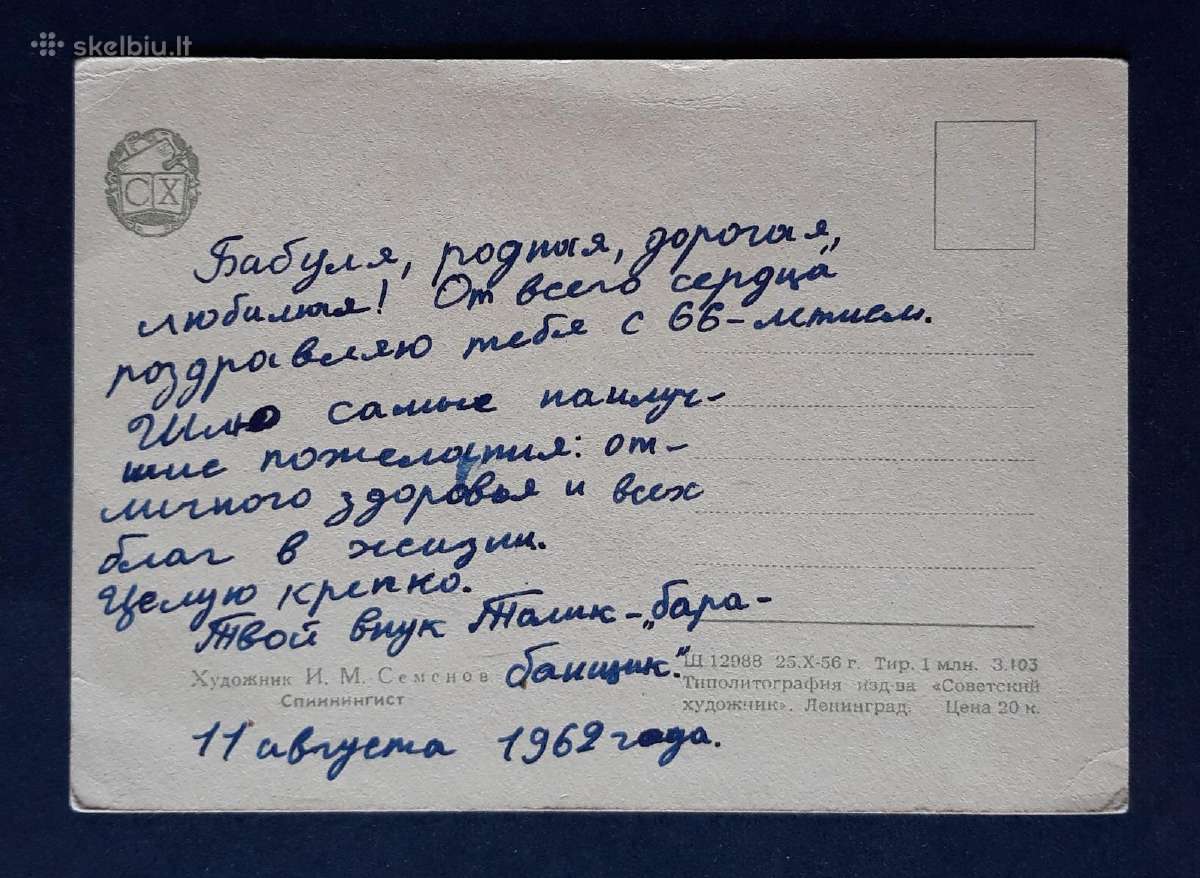 skelbiu.lt
СХ
Бабуля, родная, дорогая,
любимая! От всего сердца
поздравляю тебя с 66-летием.
Шлю самые наилуч-
шие пожелания: от-
личного здоровья и всех
благ в жизни.
Целую крепко.
Твой внук Толик-„бара-
банщик".
Художник И. М. Семенов
Спиннингист
Ш 12988 25.X-56 г. Тир. 1 млн. З.103
Типолитография изд-ва «Советский
художник». Ленинград. Цена 20 к.
11 августа 1962 года.